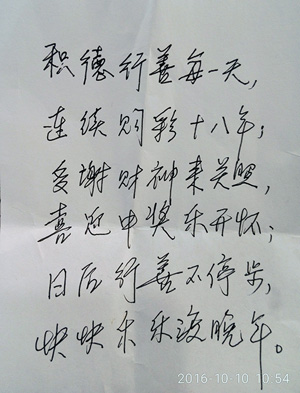 积德行善每一天，
连续购彩十八年；
多谢财神来关照，
喜迎中奖乐开怀；
日后行善不停步，
快快乐乐渡晚年。
2016-10-10 10:54